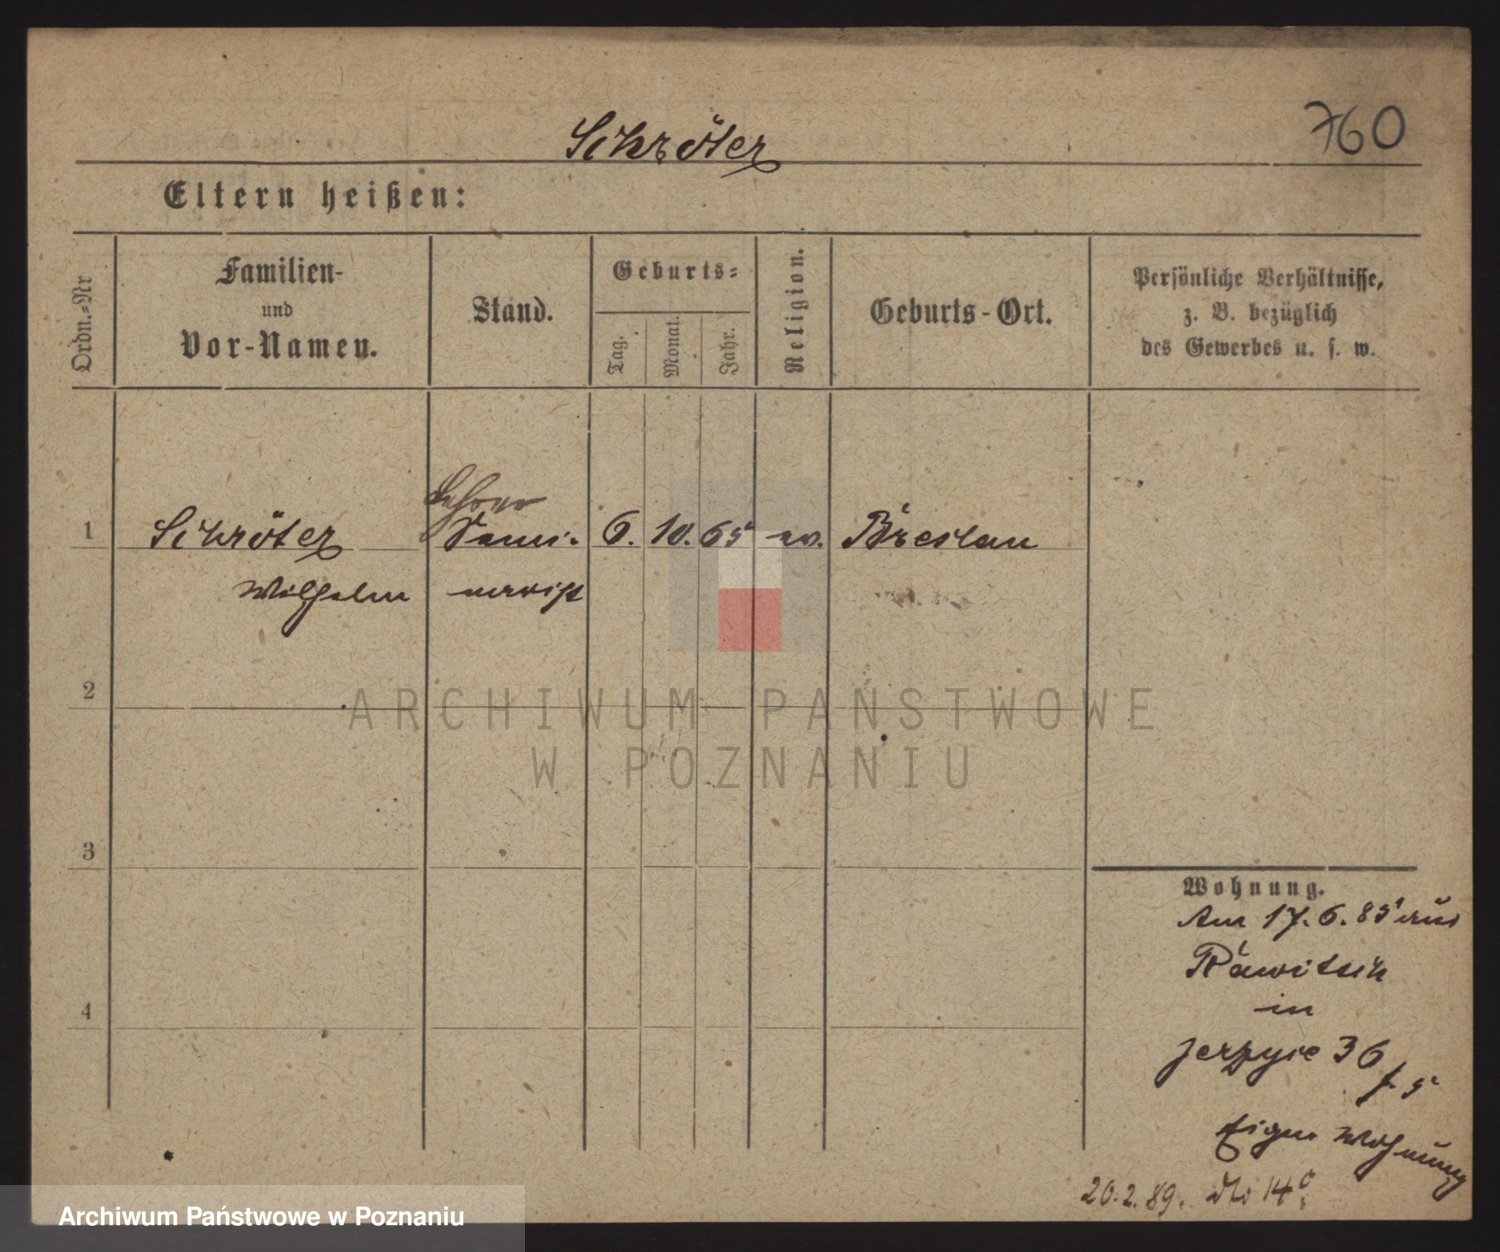 Schröter
760
Eltern heißen:
Ordn.-Nr
Familien-
und
Vor-Namen.
Stand.
Geburts-
Tag.
Monat.
Jahr.
Religion.
Geburts-Ort.
Persönliche Verhältnisse,
z. B. bezüglich
des Gewerbes u. s. w.
Lehrer
1 Schröter Semi- 6. 10. 65 ev. Breslau
Wilhelm narist
2
ARCHIWUM PAŃSTWOWE
W POZNANIU
3
4
Wohnung.
Am 17.6.85 aus
Rawitsch
in
Jerzyce 36
f. 5
Eigene Wohnung
20.2.89. 14
Archiwum Państwowe w Poznaniu